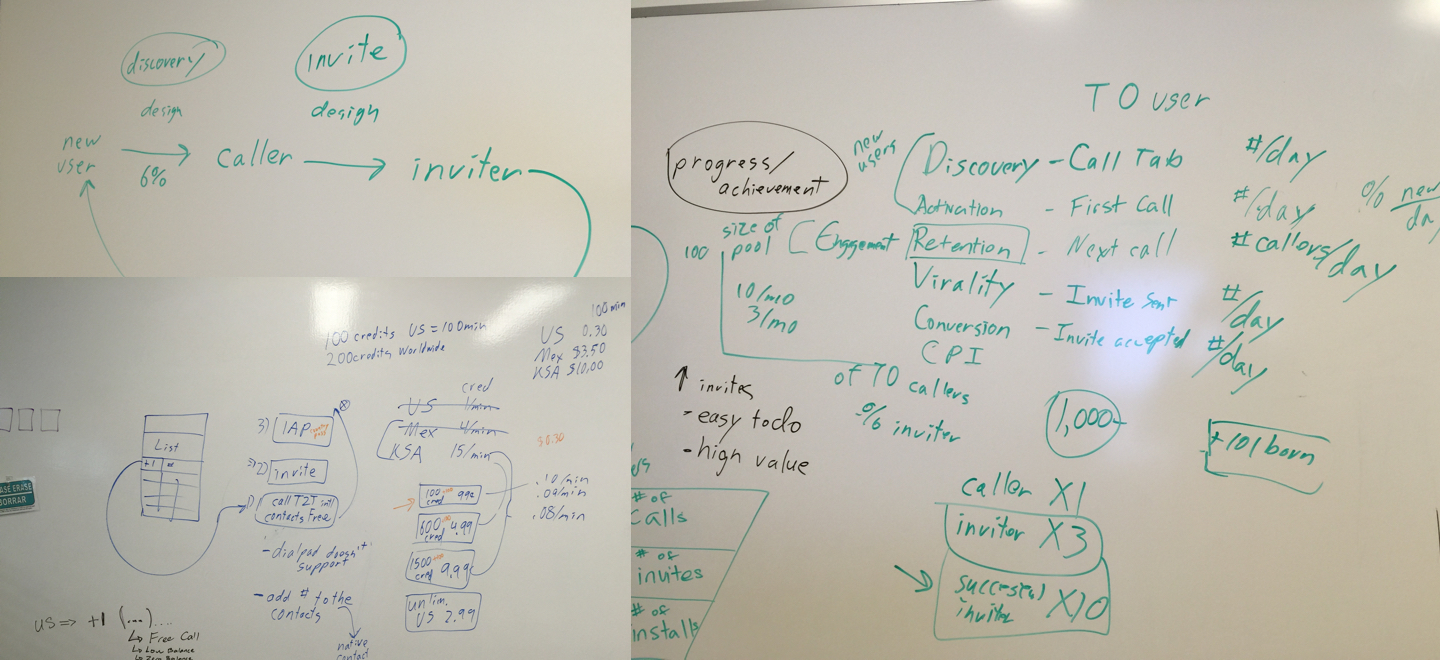 discovery
invite
design
design
new
user
6%
caller
inviter
TO user
progress/
achievement
new
users
Discovery - Call Tab #/day
Activation - First Call #/day % new/
size of
100 pool Engagement Retention - Next call #callers/day
Virality - Invite Sent #/day
10/mo
3/mo
Conversion - Invite accepted #/day
CPI
of 70 callers
% inviter
↑ invites
- easy to do
- high value
1,000
+101 born
caller X1
inviter X3
successful
inviter X10
# of
calls
# of
invites
# of
installs
100 credits US = 100min
200credits Worldwide
100 min
US 0.30
Mex $3.50
KSA $10.00
cred
US 1/min
Mex 4/min
KSA 15/min
$0.30
List
+1
3) IAP
2) invite
1) call T2T intl
contacts Free
- dialpad doesn't
support
- add # to the
contacts
native
contact
100
cred 99¢
600
cred 4.99
1500
cred 9.99
unlim.
US 2.99
.10/min
.09/min
.08/min
US => +1 (...)....
↳ Free Call
↳ Low Balance
↳ Zero Balance
ASE ERASE
BORRAR